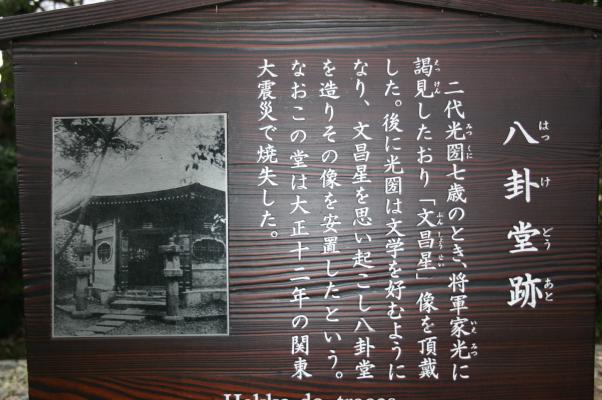 八卦堂跡
はっけどうあと
二代光圀七歳のとき、将軍家光に
みつくに
いえみつ
謁見したおり「文昌星」像を頂戴
えっけん
ぶんしょうせい
した。後に光圀は文学を好むように
なり、文昌星を思い起こし八卦堂
を造りその像を安置したという。
なおこの堂は大正十二年の関東
大震災で焼失した。
Hakke-do traces